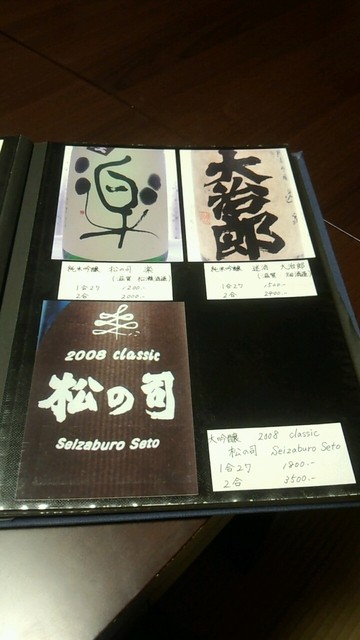 楽
純米吟醸 松の司 楽
(滋賀 松瀬酒造)
1合2勺 1200.-
2合 2000.-
大治郎
純米吟醸 迷流 大治郎
(滋賀 畑酒造)
1合2勺 1500.-
2合 2400.-
2008 classic
松の司
Seizaburo Seto
大吟醸 2008 classic
松の司 Seizaburo Seto
1合2勺 1800.-
2合 3500.-